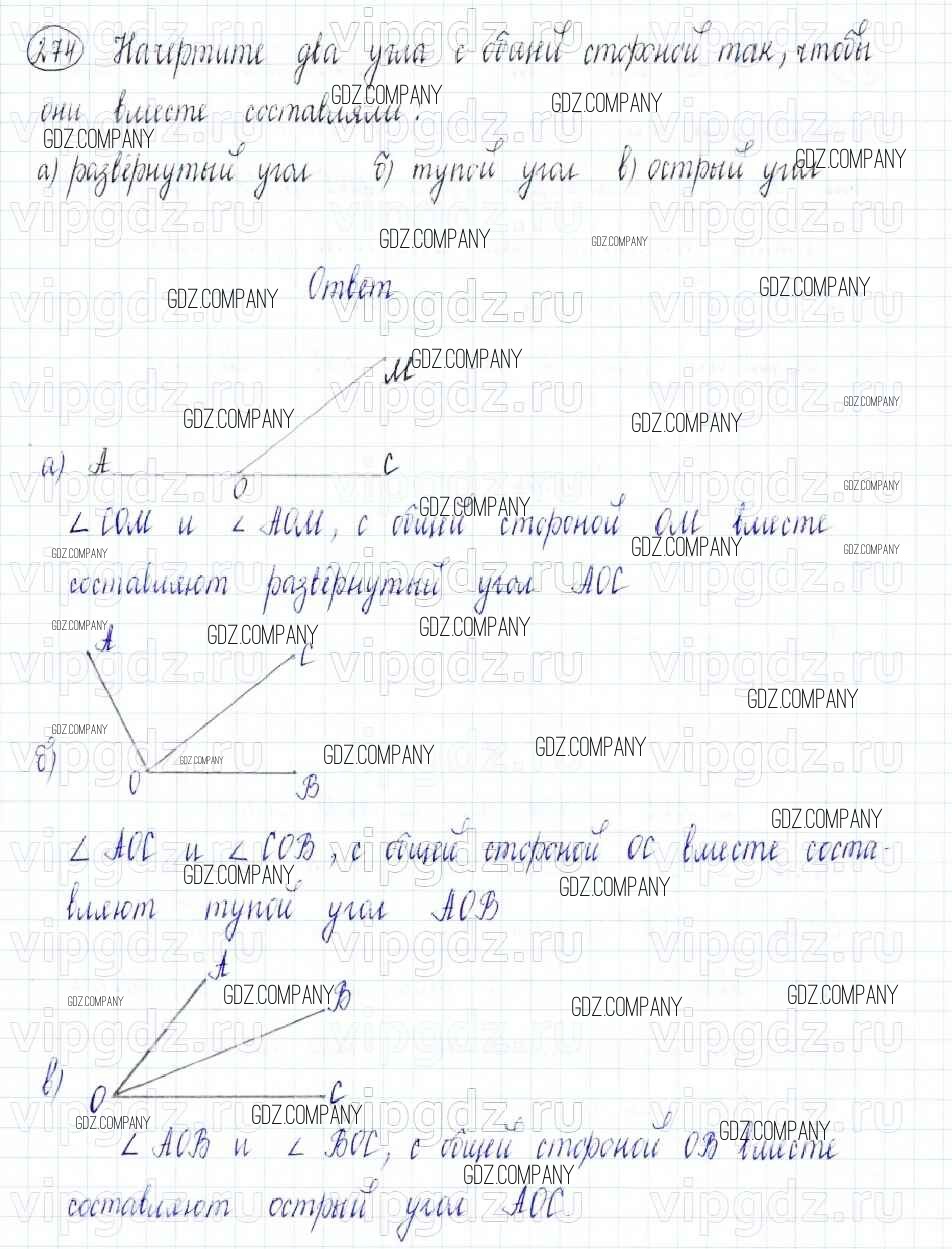 274 Начертите два угла с общей стороной так, чтобы
они вместе составляли:
а) развёрнутый угол б) тупой угол в) острый угол
Ответ
M
а) A O C
∠ COM и ∠ AOM, с общей стороной OM вместе
составляют развёрнутый угол AOC
A C
б) O B
∠ AOC и ∠ COB, с общей стороной OC вместе соста-
вляют тупой угол AOB
A B
в) O C
∠ AOB и ∠ BOC, с общей стороной OB вместе
составляют острый угол AOC
GDZ.COMPANY
vipgdz.ru